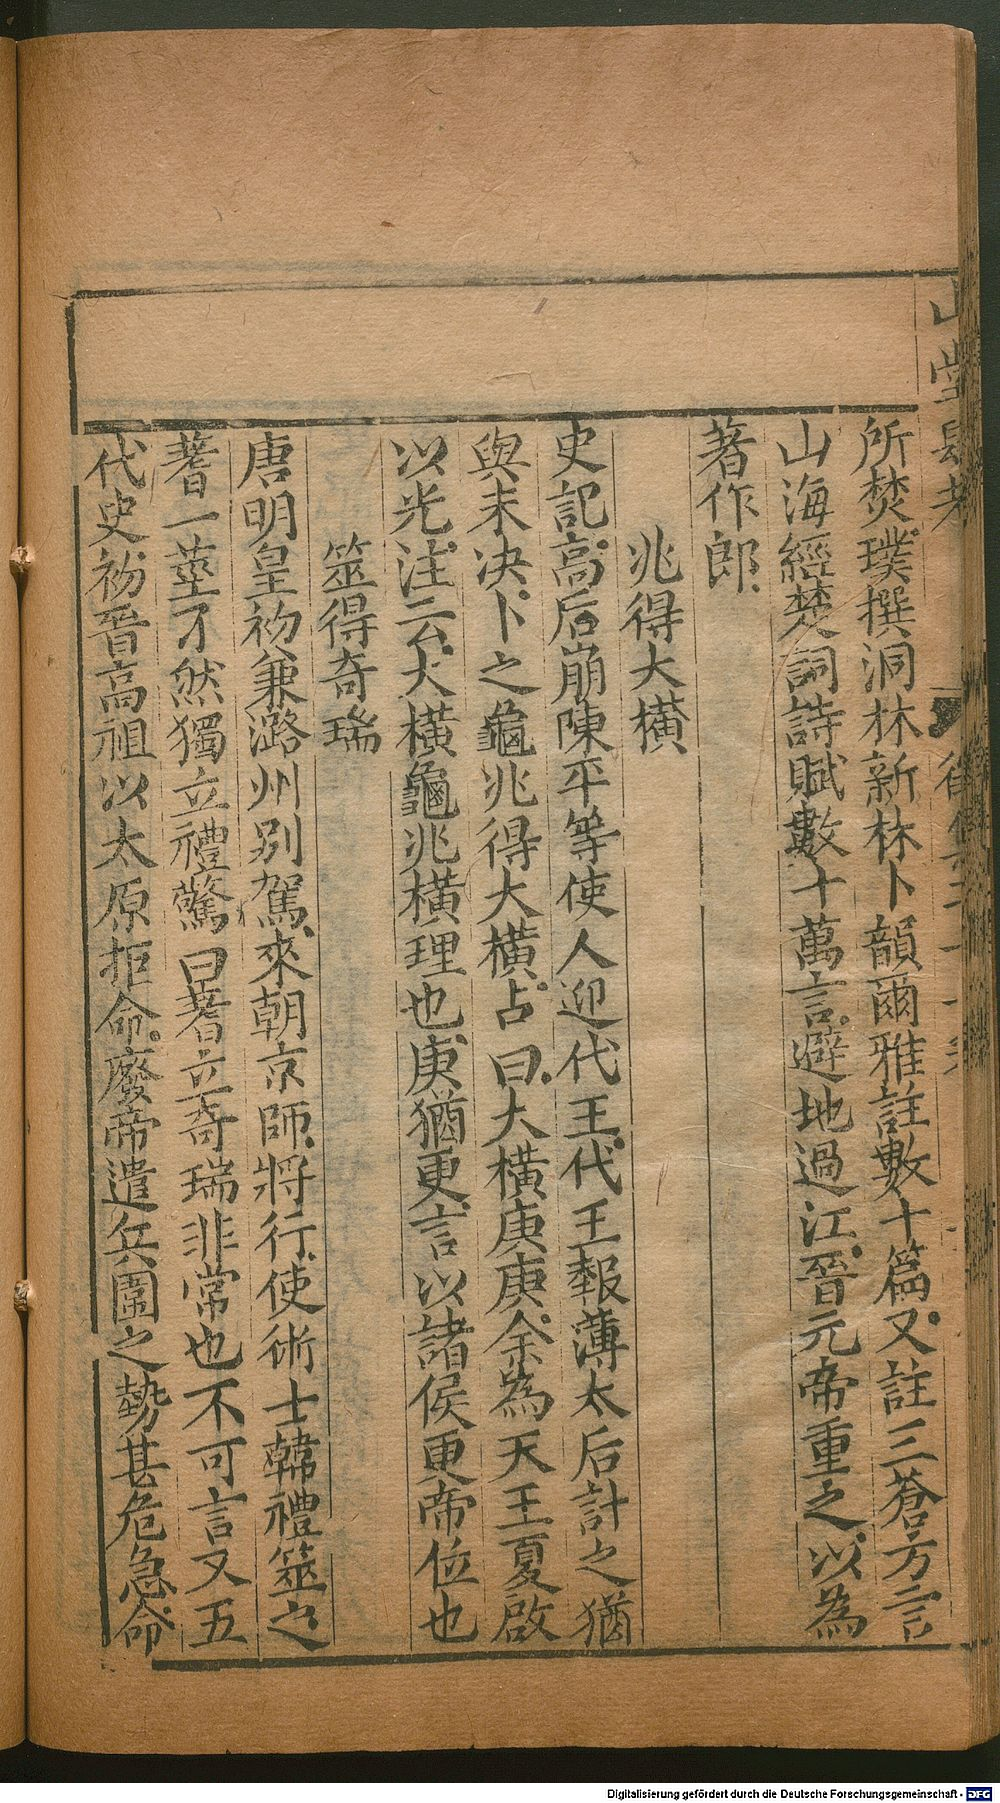 山堂肆考
所焚璞撰洞林新林卜韻爾雅註數十篇又註三蒼方言
山海經楚詞詩賦數十萬言避地過江晉元帝重之以為
著作郎
兆得大橫
史記高后崩陳平等使人迎代王代王報薄太后計之猶
與未決卜之龜兆得大橫占曰大橫庚庚余為天王夏啟
以光注云大橫龜兆橫理也庚猶更言以諸侯更帝位也
筮得奇瑞
唐明皇初兼潞州別駕來朝京師將行使術士韓禮筮之
蓍一莖孑然獨立禮驚曰蓍立奇瑞非常也不可言又五
代史初晉高祖以太原拒命廢帝遣兵圍之勢甚危急命
Digitalisierung gefördert durch die Deutsche Forschungsgemeinschaft - DFG